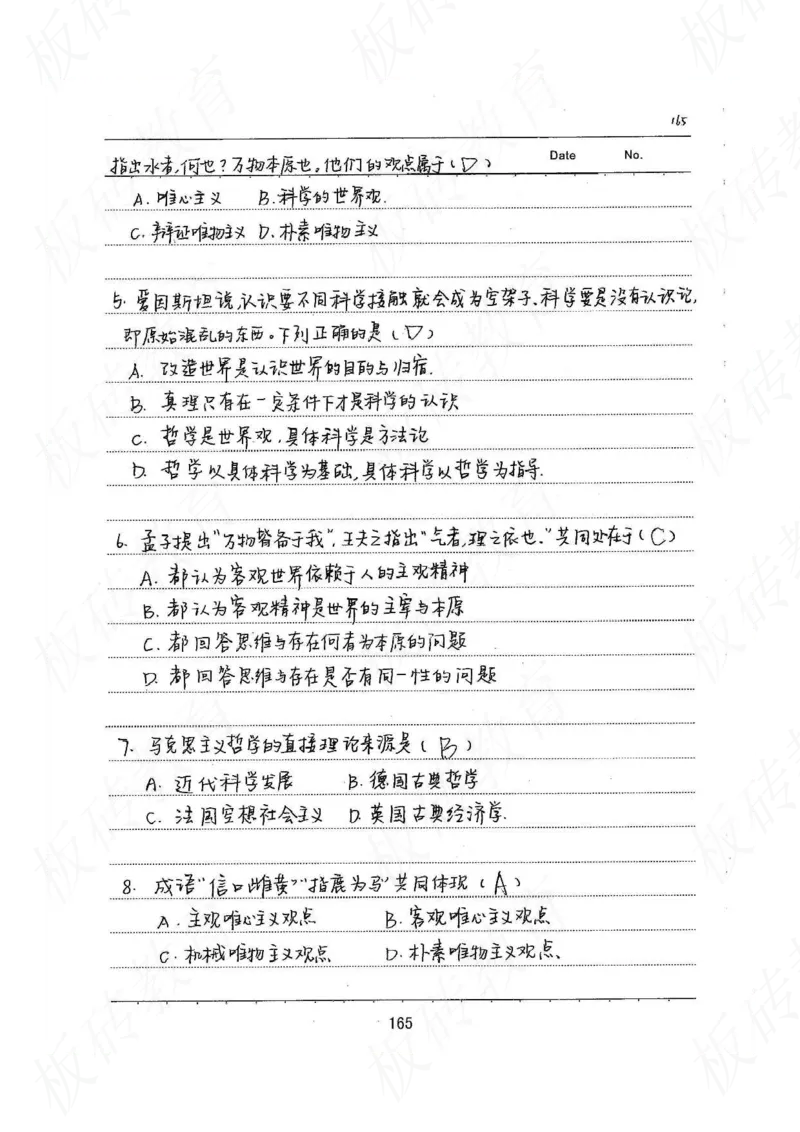 165
Date No.
指出水者,何也?万物本原也。他们的观点属于(D)
A. 唯心主义 B. 科学的世界观.
C. 辩证唯物主义 D. 朴素唯物主义
5. 爱因斯坦说,认识要不同科学接触就会成为空架子、科学要是没有认识论,
即原始混乱的东西。下列正确的是(D)
A. 改造世界是认识世界的目的与归宿.
B. 真理只有在一定条件下才是科学的认识
C. 哲学是世界观,具体科学是方法论
D. 哲学以具体科学为基础,具体科学以哲学为指导.
6. 孟子提出"万物皆备于我",王夫之指出"气者,理之依也."共同处在于(C)
A. 都认为客观世界依赖于人的主观精神
B. 都认为客观精神是世界的主宰与本原
C. 都回答思维与存在何者为本原的问题
D. 都回答思维与存在是否有同一性的问题
7. 马克思主义哲学的直接理论来源是(B)
A. 近代科学发展 B. 德国古典哲学
C. 法国空想社会主义 D. 英国古典经济学.
8. 成语"信口雌黄""指鹿为马"共同体现(A)
A. 主观唯心主义观点 B. 客观唯心主义观点
C. 机械唯物主义观点 D. 朴素唯物主义观点、
165
板砖教育